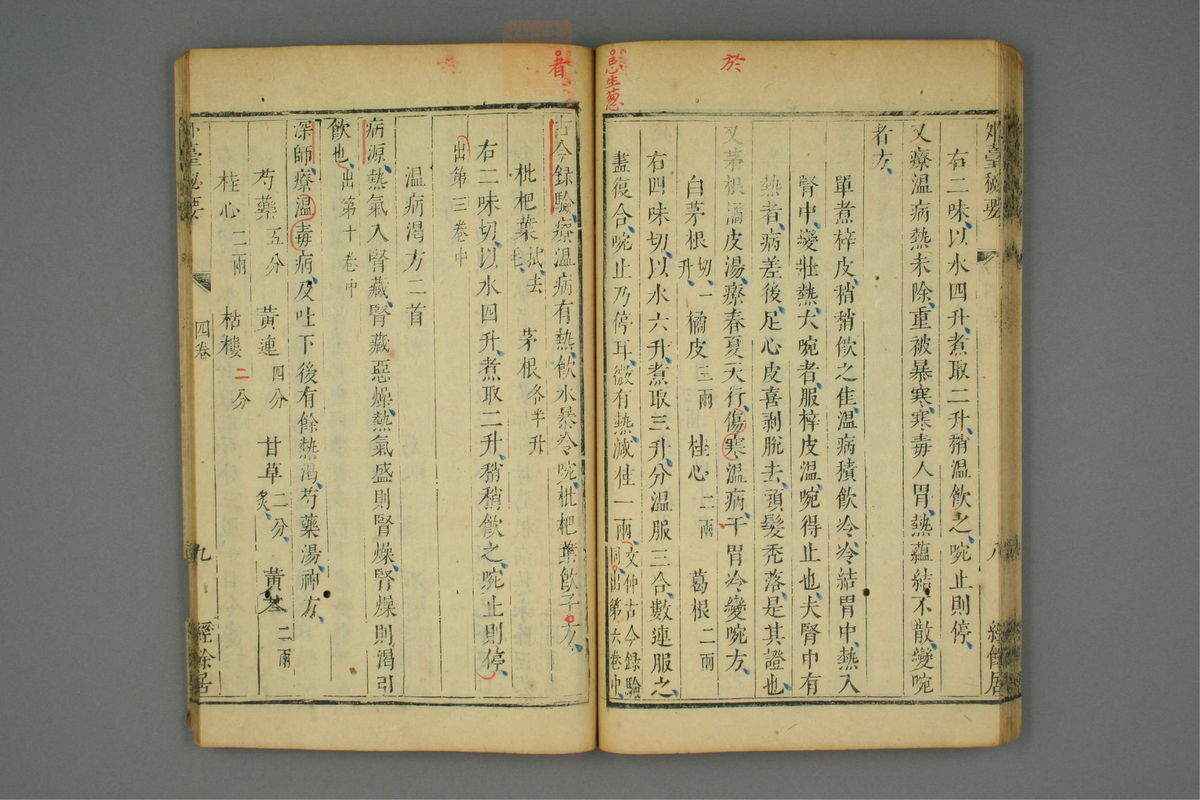 於
葱
外臺秘要
八
經餘居
右二味以水四升煮取二升稍溫飲之啘止則停
又療溫病熱未除重被暴寒寒毒入胃熱蘊結不散變啘
者方
單煮梓皮稍稍飲之佳溫病積飲冷冷結胃中熱入
腎中變壯熱大啘者服梓皮溫啘得止也夫腎中有
熱者病差後足心皮喜剥脫去頭髮秃落是其證也
又茅根橘皮湯療春夏天行傷寒溫病干胃冷變啘方
白茅根切一升 橘皮三兩 桂心二兩 葛根二兩
右四味切以水六升煮取三升分溫服三合數連服之
盡復合啘止乃停耳微有熱減桂一兩文仲古今録驗同出第六卷中
者
古今録驗療溫病有熱飲水暴冷啘枇杷葉飲子方
枇杷葉拭去毛 茅根各半升
右二味切以水四升煮取二升稍稍飲之啘止則停
出第三卷中
溫病渴方二首
病源熱氣入腎藏腎藏惡燥熱氣盛則腎燥腎燥則渴引
飲也出第十卷中
深師療溫毒病及吐下後有餘熱渴芍藥湯神方
芍藥五分 黃連四分 甘草二分炙 黃芩二兩
桂心二兩 栝樓二分
外臺秘要
四卷
九
經餘居